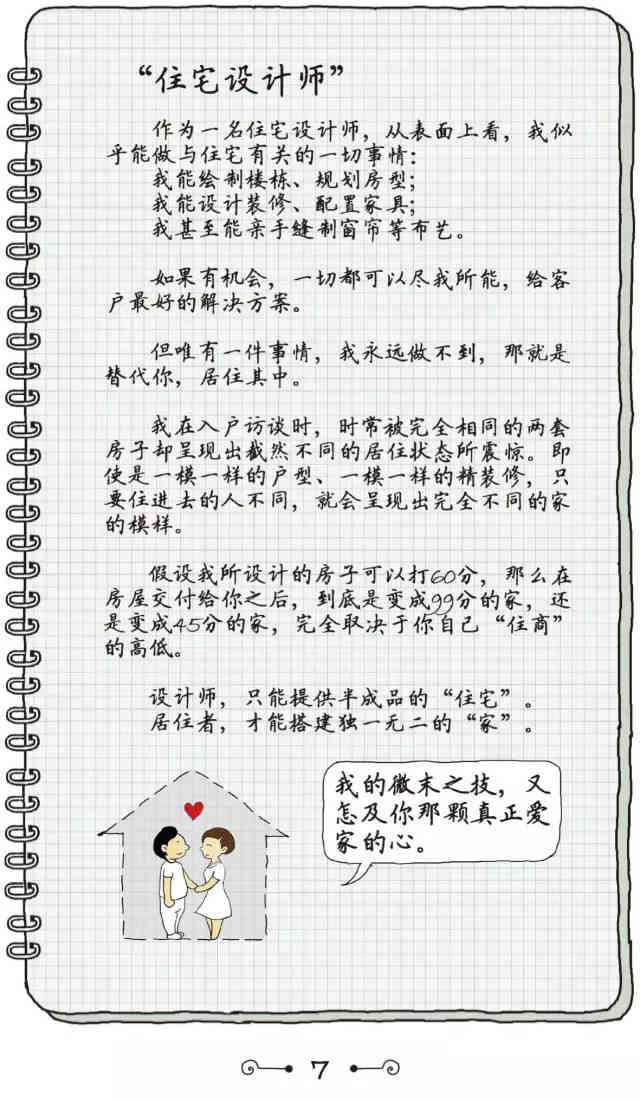 “住宅设计师”
作为一名住宅设计师，从表面上看，我似
乎能做与住宅有关的一切事情：
我能绘制楼栋、规划房型；
我能设计装修、配置家具；
我甚至能亲手缝制窗帘等布艺。
如果有机会，一切都可以尽我所能，给客
户最好的解决方案。
但唯有一件事情，我永远做不到，那就是
替代你，居住其中。
我在入户访谈时，时常被完全相同的两套
房子却呈现出截然不同的居住状态所震惊。即
使是一模一样的户型、一模一样的精装修，只
要住进去的人不同，就会呈现出完全不同的家
的模样。
假设我所设计的房子可以打60分，那么在
房屋交付给你之后，到底是变成99分的家，还
是变成45分的家，完全取决于你自己“住商”
的高低。
设计师，只能提供半成品的“住宅”。
居住者，才能搭建独一无二的“家”。
我的微末之技，又
怎及你那颗真正爱
家的心。
7